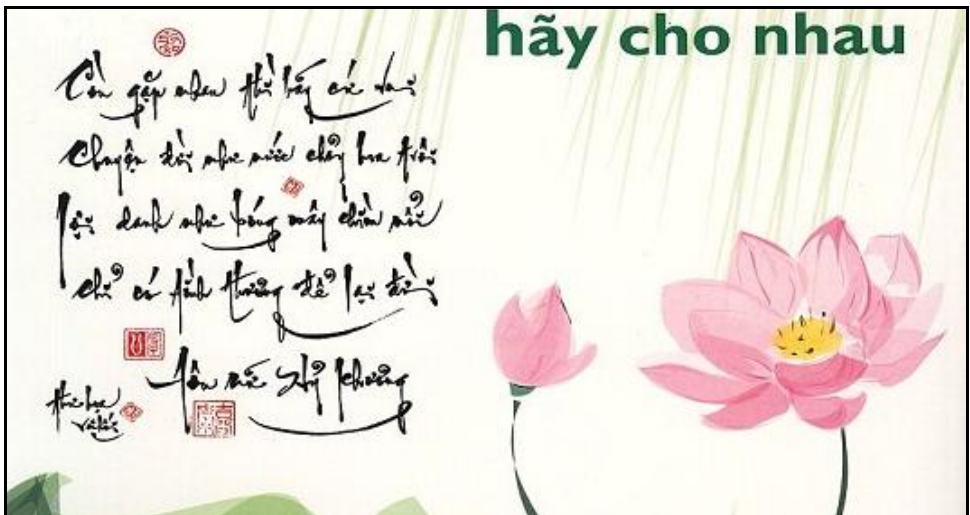 hãy cho nhau
Còn gặp nhau thì hãy cứ vui
Chuyện đời như nước chảy hoa trôi
Lợi danh như bóng mây chìm nổi
Chỉ có tình thương để lại đời
Tôn nữ Hỷ Khương